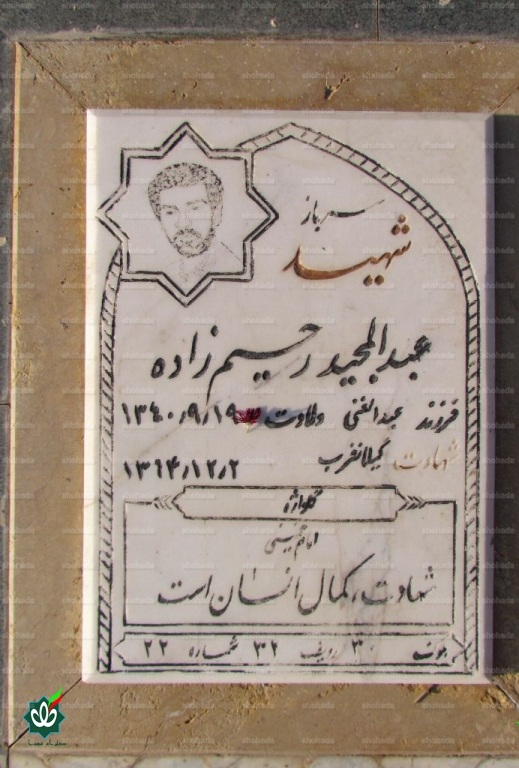 سرباز
شهید
عبدالمجید رحیم زاده
فرزند عبدالغنی ولادت ۱۳۴۰/۹/۱۹
شهادت: گیلانغرب ۱۳۶۴/۱۲/۲
گلواژه
امام خمینی
شهادت، کمال انسان است
بلوک ۳۰ ردیف ۳۲ شماره ۲۲
shohada